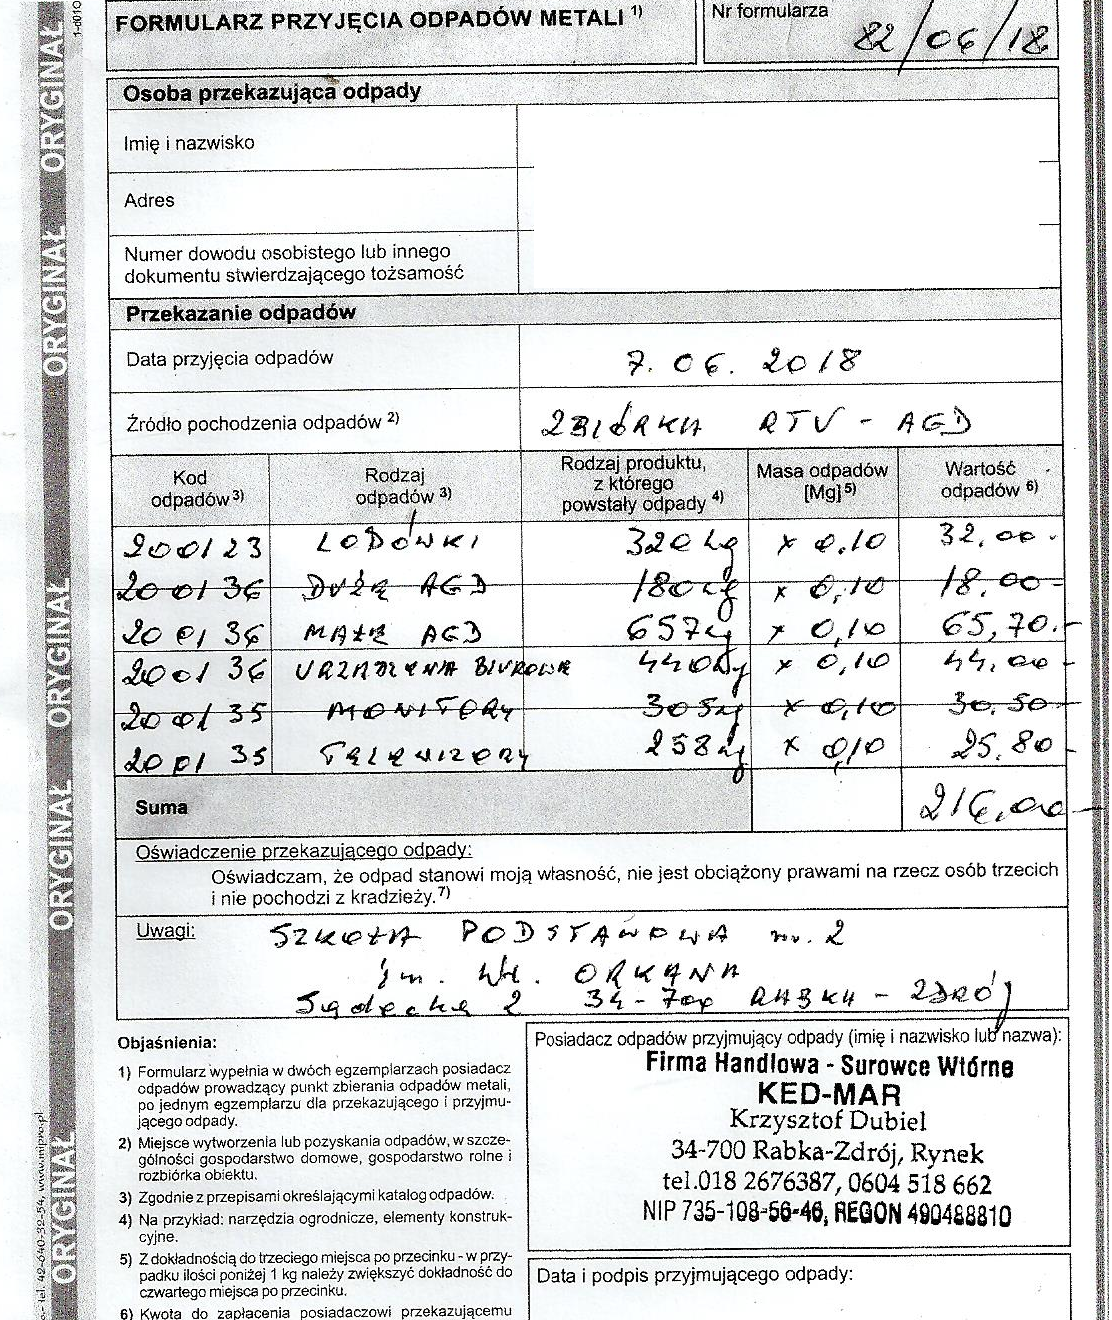 FORMULARZ PRZYJĘCIA ODPADÓW METALI 1)
Nr formularza
82/06/18
Osoba przekazująca odpady
Imię i nazwisko
Adres
Numer dowodu osobistego lub innego
dokumentu stwierdzającego tożsamość
Przekazanie odpadów
Data przyjęcia odpadów 7. 06. 2018
Źródło pochodzenia odpadów 2) ZBIÓRKA RTV - AGD
Kod odpadów 3) Rodzaj odpadów 3) Rodzaj produktu, z którego powstały odpady 4) Masa odpadów [Mg] 5) Wartość odpadów 6)
200123 LODÓWKI 320 kg x 0.10 32,00
200136 DUŻE AGD 180 kg x 0,10 18,00
200136 MAŁE AGD 657 kg x 0,10 65,70
200136 URZĄDZENIA BIUROWE 440 kg x 0,10 44,00
200135 MONITORY 305 kg x 0,10 30.50
200135 TELEWIZORY 258 kg x 0,10 25.80
Suma 216,00
Oświadczenie przekazującego odpady:
Oświadczam, że odpad stanowi moją własność, nie jest obciążony prawami na rzecz osób trzecich
i nie pochodzi z kradzieży. 7)
Uwagi: SZKOŁA PODSTAWOWA nr. 2
im. Wł. ORKANA
Sądecka 2 34-700 RABKA - ZDRÓJ
Objaśnienia:
1) Formularz wypełnia w dwóch egzemplarzach posiadacz
odpadów prowadzący punkt zbierania odpadów metali,
po jednym egzemplarzu dla przekazującego i przyjmu-
jącego odpady.
2) Miejsce wytworzenia lub pozyskania odpadów, w szcze-
gólności gospodarstwo domowe, gospodarstwo rolne i
rozbiórka obiektu.
3) Zgodnie z przepisami określającymi katalog odpadów.
4) Na przykład: narzędzia ogrodnicze, elementy konstruk-
cyjne.
5) Z dokładnością do trzeciego miejsca po przecinku - w przy-
padku ilości poniżej 1 kg należy zwiększyć dokładność do
czwartego miejsca po przecinku.
6) Kwota do zapłacenia posiadaczowi przekazującemu
Posiadacz odpadów przyjmujący odpady (imię i nazwisko lub nazwa):
Firma Handlowa - Surowce Wtórne
KED-MAR
Krzysztof Dubiel
34-700 Rabka-Zdrój, Rynek
tel.018 2676387, 0604 518 662
NIP 735-108-56-46, REGON 490488810
Data i podpis przyjmującego odpady:
ORYGINAŁ ORYGINAŁ ORYGINAŁ ORYGINAŁ ORYGINAŁ ORYGINAŁ
tel. 42-640-52-54, www.mipro.pl